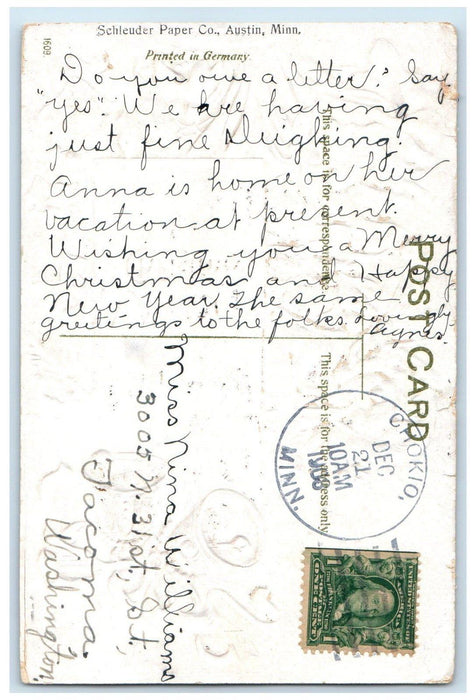 1609
Schleuder Paper Co., Austin, Minn.
Printed in Germany
Do you owe a letter? Say
"yes". We are having
just fine sleighing.
Anna is home on her
vacation at present.
Wishing you a Merry
Christmas and Happy
New Year. The same
greetings to the folks. Lovingly
Agnes
This space is for correspondence
POST CARD
This space is for the address only
Miss Nina Williams
3005 N. 31st, St,
Tacoma
Washington,
CHOKIO,
DEC
21
10AM
MINN.